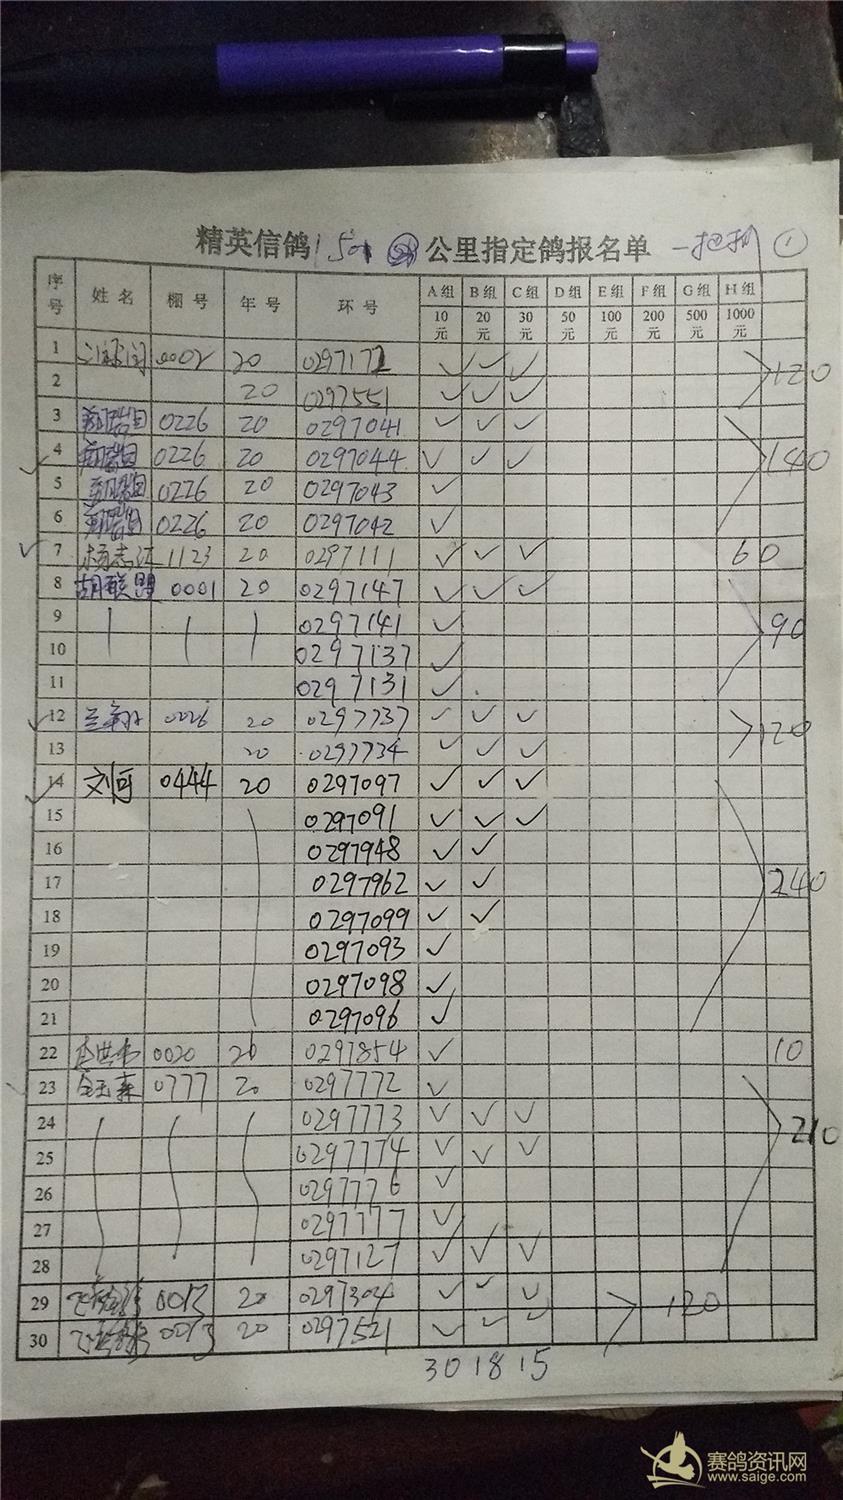 精英信鸽 501 公里指定鸽报名单 ①
序号 姓名 棚号 年号 环号 A组 B组 C组 D组 E组 F组 G组 H组
10元 20元 30元 50元 100元 200元 500元 1000元
1 0002 20 0297172 ✓ ✓ ✓ 120
2 20 0297551 ✓ ✓ ✓
3 0226 20 0297041 ✓ ✓ ✓
4 0226 20 0297044 ✓ ✓ ✓ 140
5 0226 20 0297043 ✓
6 0226 20 0297042 ✓
7 杨志江 1123 20 0297111 ✓ ✓ ✓ 60
8 胡联盟 0001 20 0297147 ✓ ✓ ✓
9 0297141 ✓ 90
10 0297137 ✓
11 0297131 ✓
12 0026 20 0297737 ✓ ✓ ✓ 120
13 20 0297734 ✓ ✓ ✓
14 刘可 0444 20 0297097 ✓ ✓ ✓
15 0297091 ✓ ✓ ✓
16 0297948 ✓ ✓
17 0297962 ✓ ✓ 240
18 0297099 ✓ ✓
19 0297093 ✓
20 0297098 ✓
21 0297096 ✓
22 0020 20 0297854 ✓ 10
23 0777 20 0297772 ✓
24 0297773 ✓ ✓ ✓ 210
25 0297774 ✓ ✓ ✓
26 0297776 ✓
27 0297777 ✓
28 0297127 ✓ ✓ ✓
29 0013 20 0297304 ✓ ✓ ✓ 120
30 0013 20 0297521 ✓ ✓ ✓
30 18 15
赛鸽资讯网
www.saige.com